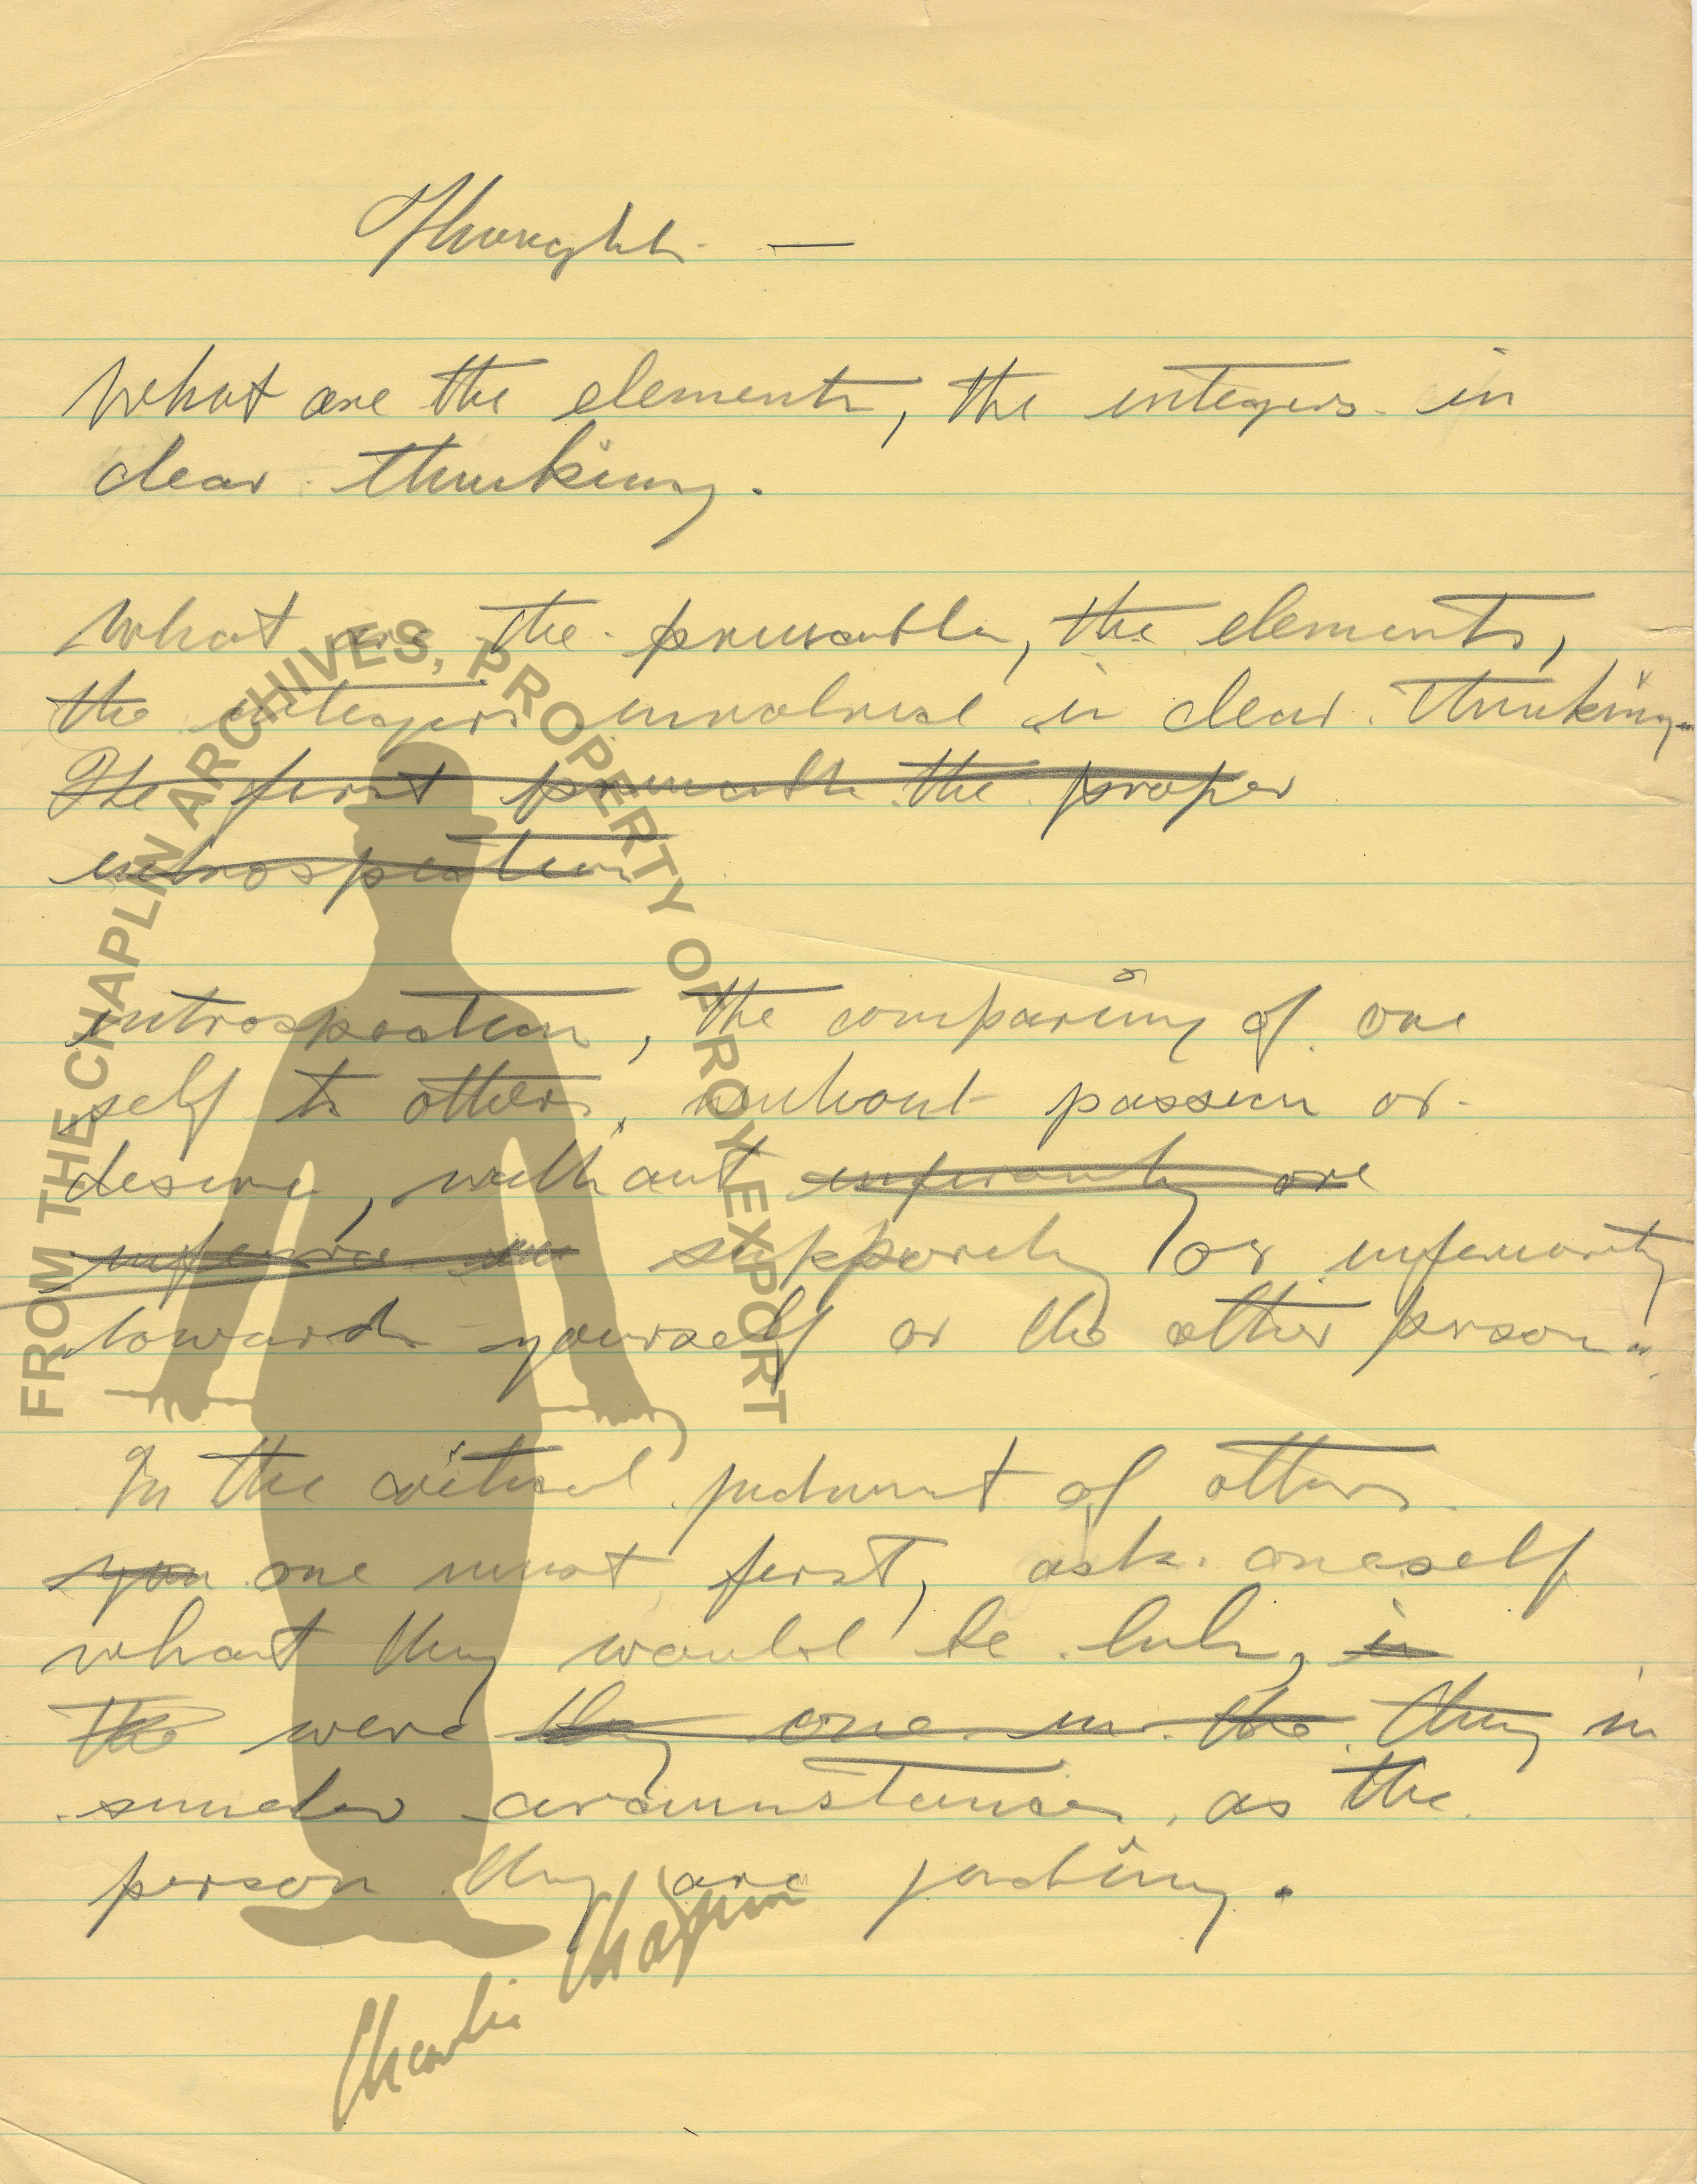 Thoughts —
What are the elements, the integers in
clear thinking.
What are the the elements,
the integers involved in clear thinking.
The first the proper
introspection
introspection, the comparing of one
self to others, without passion or
desire, without inferiority or
or inferiority
towards yourself or the other person.
In the critical judment of others
you one must first, ask oneself
what they would be like, in
the were they one in the they in
circumstances, as the
person they are judging.
FROM THE CHAPLIN ARCHIVES, PROPERTY OF ROY EXPORT
Charlie Chaplin